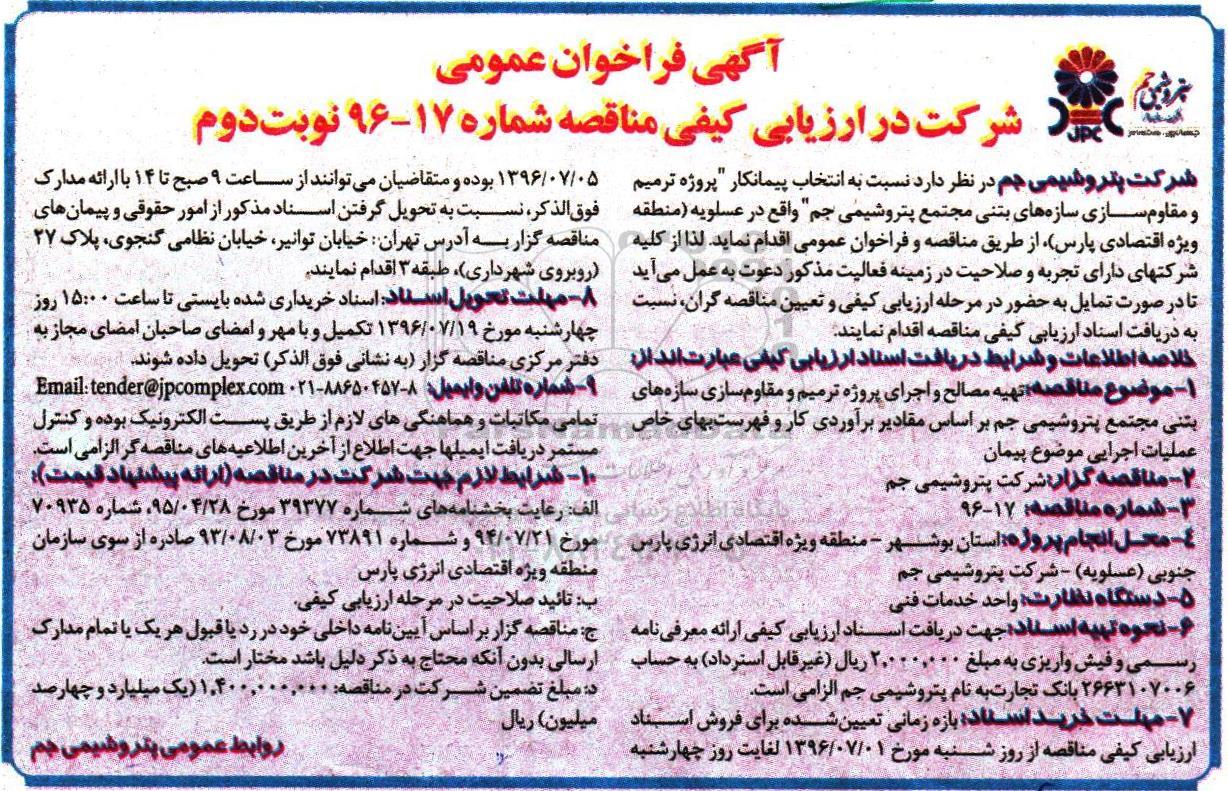 آگهی فراخوان عمومی
شرکت در ارزیابی کیفی مناقصه شماره ۱۷-۹۶ نوبت دوم
پتروشیمی جم
JPC
شرکت پتروشیمی جم در نظر دارد نسبت به انتخاب پیمانکار "پروژه ترمیم
و مقاوم‌سازی سازه‌های بتنی مجتمع پتروشیمی جم" واقع در عسلویه (منطقه
ویژه اقتصادی پارس)، از طریق مناقصه و فراخوان عمومی اقدام نماید. لذا از کلیه
شرکتهای دارای تجربه و صلاحیت در زمینه فعالیت مذکور دعوت به عمل می‌آید
تا در صورت تمایل به حضور در مرحله ارزیابی کیفی و تعیین مناقصه گران، نسبت
به دریافت اسناد ارزیابی کیفی مناقصه اقدام نمایند:
خلاصه اطلاعات و شرایط دریافت اسناد ارزیابی کیفی عبارت‌اند از:
۱-موضوع مناقصه: تهیه مصالح و اجرای پروژه ترمیم و مقاوم‌سازی سازه‌های
بتنی مجتمع پتروشیمی جم بر اساس مقادیر برآوردی کار و فهرست‌بهای خاص
عملیات اجرایی موضوع پیمان
۲-مناقصه گزار: شرکت پتروشیمی جم
۳-شماره مناقصه: ۱۷-۹۶
۴-محل انجام پروژه: استان بوشهر – منطقه ویژه اقتصادی انرژی پارس
جنوبی (عسلویه) – شرکت پتروشیمی جم
۵-دستگاه نظارت: واحد خدمات فنی
۶-نحوه تهیه اسناد: جهت دریافت اسناد ارزیابی کیفی ارائه معرفی‌نامه
رسمی و فیش واریزی به مبلغ ۲,۰۰۰,۰۰۰ ریال (غیرقابل استرداد) به حساب
۲۶۶۳۱۰۷۰۰۶ بانک تجارت به نام پتروشیمی جم الزامی است.
۷-مهلت خرید اسناد: بازه زمانی تعیین‌شده برای فروش اسناد
ارزیابی کیفی مناقصه از روز شنبه مورخ ۱۳۹۶/۰۷/۰۱ لغایت روز چهارشنبه
۱۳۹۶/۰۷/۰۵ بوده و متقاضیان می‌توانند از ساعت ۹ صبح تا ۱۴ با ارائه مدارک
فوق‌الذکر، نسبت به تحویل گرفتن اسناد مذکور از امور حقوقی و پیمان‌های
مناقصه گزار به آدرس تهران: خیابان توانیر، خیابان نظامی گنجوی، پلاک ۲۷
(روبروی شهرداری)، طبقه ۳ اقدام نمایند.
۸-مهلت تحویل اسناد: اسناد خریداری شده بایستی تا ساعت ۱۵:۰۰ روز
چهارشنبه مورخ ۱۳۹۶/۰۷/۱۹ تکمیل و با مهر و امضای صاحبان امضای مجاز به
دفتر مرکزی مناقصه گزار (به نشانی فوق الذکر) تحویل داده شوند.
۹-شماره تلفن و ایمیل: ۸-۸۸۶۵۰۴۵۷-۰۲۱ Email: tender@jpcomplex.com
تمامی مکاتبات و هماهنگی های لازم از طریق پست الکترونیک بوده و کنترل
مستمر دریافت ایمیلها جهت اطلاع از آخرین اطلاعیه‌های مناقصه‌گر الزامی است.
۱۰- شرایط لازم جهت شرکت در مناقصه (ارائه پیشنهاد قیمت):
الف: رعایت بخشنامه‌های شماره ۳۹۳۷۷ مورخ ۹۵/۰۴/۲۸، شماره ۷۰۹۳۵
مورخ ۹۴/۰۷/۲۱ و شماره ۷۳۸۹۱ مورخ ۹۳/۰۸/۰۳ صادره از سوی سازمان
منطقه ویژه اقتصادی انرژی پارس
ب: تائید صلاحیت در مرحله ارزیابی کیفی.
ج: مناقصه گزار بر اساس آیین‌نامه داخلی خود در رد یا قبول هر یک یا تمام مدارک
ارسالی بدون آنکه محتاج به ذکر دلیل باشد مختار است.
د: مبلغ تضمین شرکت در مناقصه: ۱,۴۰۰,۰۰۰,۰۰۰ (یک میلیارد و چهارصد
میلیون) ریال
روابط عمومی پتروشیمی جم